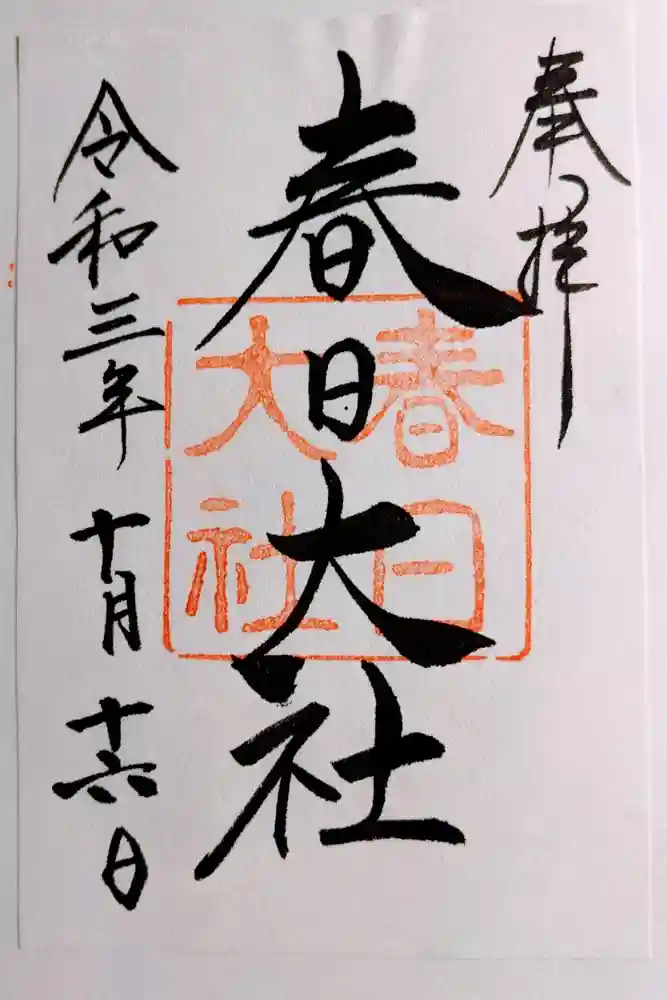 奉拝
春日大社
春日
大社
令和三年十月十六日